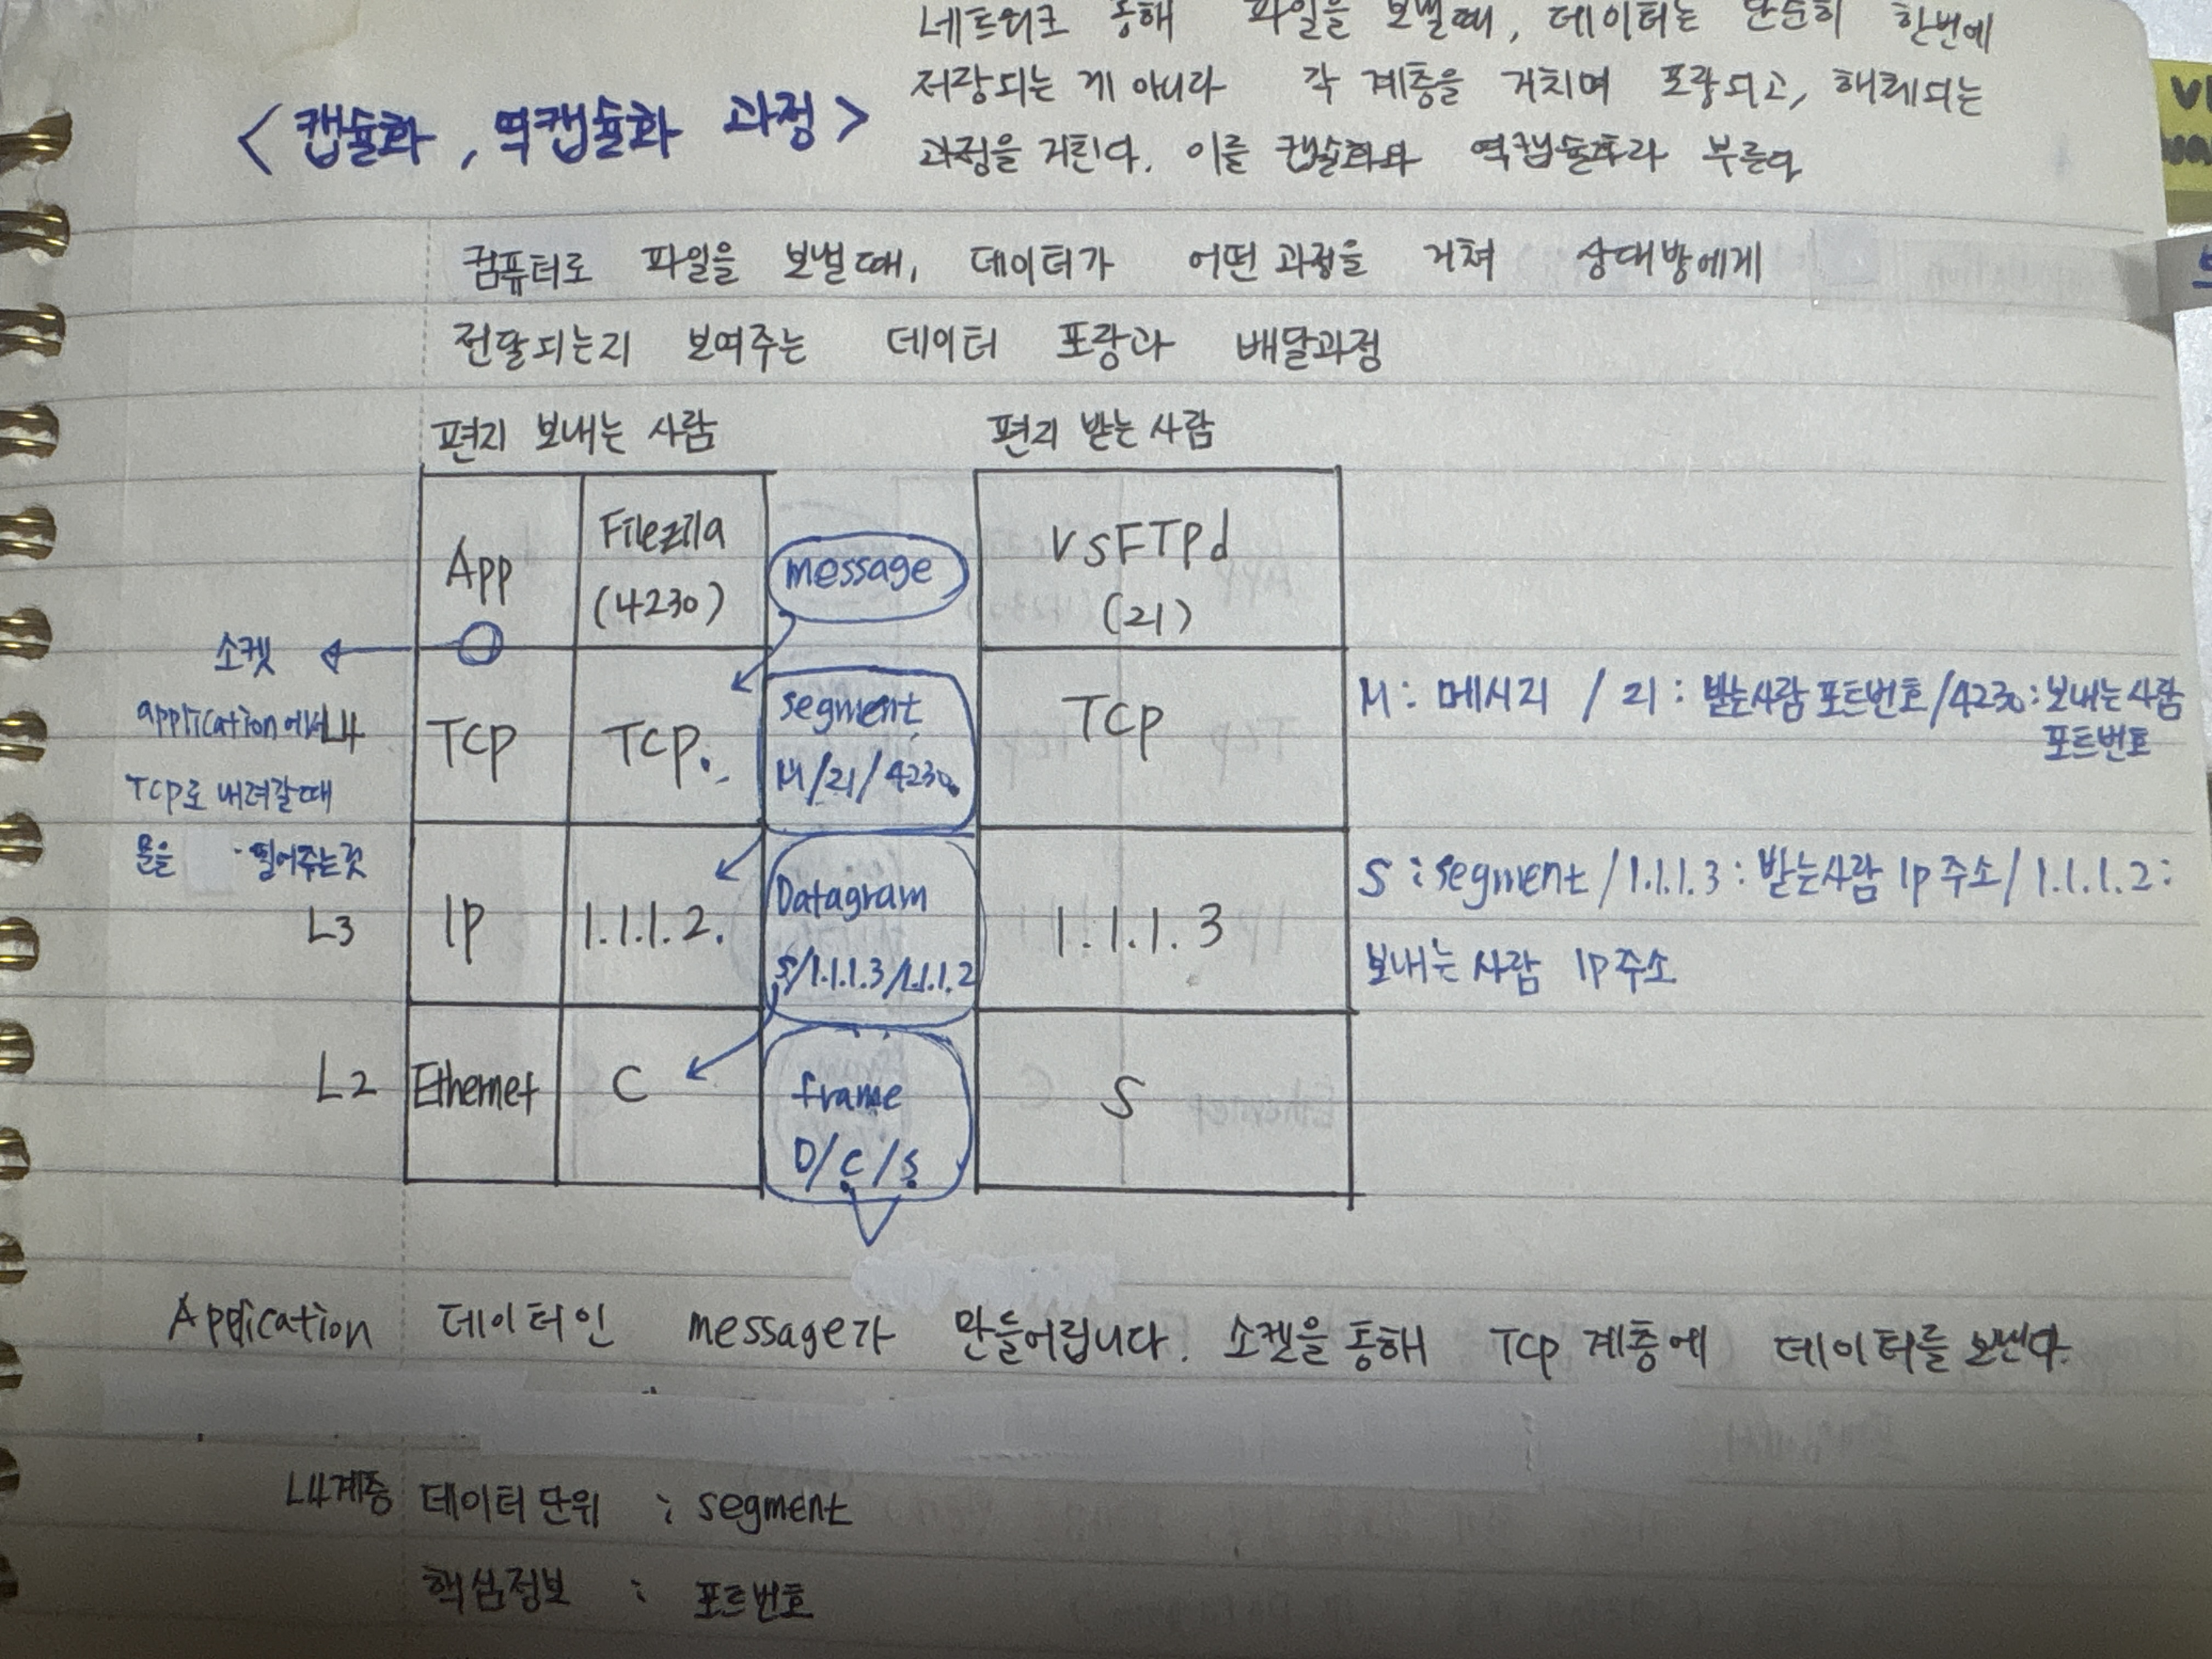 네트워크 통해 파일을 보낼때, 데이터는 단순히 한번에
<캡슐화, 역캡슐화 과정>
저장되는 게 아니라 각 계층을 거치며 포장되고, 해체되는
과정을 거친다. 이를 캡슐화와 역캡슐화라 부른다
컴퓨터로 파일을 보낼때, 데이터가 어떤 과정을 거쳐 상대방에게
전달되는지 보여주는 데이터 포장과 배달과정
편지 보내는 사람
편지 받는 사람
App
Filezila
(4230)
message
VSFTPd
(21)
소켓
application에서
TCP로 내려갈때
문을 열어주는것
L4
TCP
TCP.
segment
M/21/4230
TCP
M: 메시지 / 21: 받는사람 포트번호/4230: 보내는 사람
포트번호
L3
IP
1.1.1.2.
Datagram
S/1.1.1.3/1.1.1.2
1.1.1.3
S: segment/1.1.1.3: 받는사람 IP 주소/1.1.1.2:
보내는 사람 IP 주소
L2
Ethernet
C
frame
D/C/S
S
Application 데이터인 message가 만들어집니다. 소켓을 통해 TCP 계층에 데이터를 보낸다.
L4계층 데이터 단위 : segment
핵심정보 : 포트번호